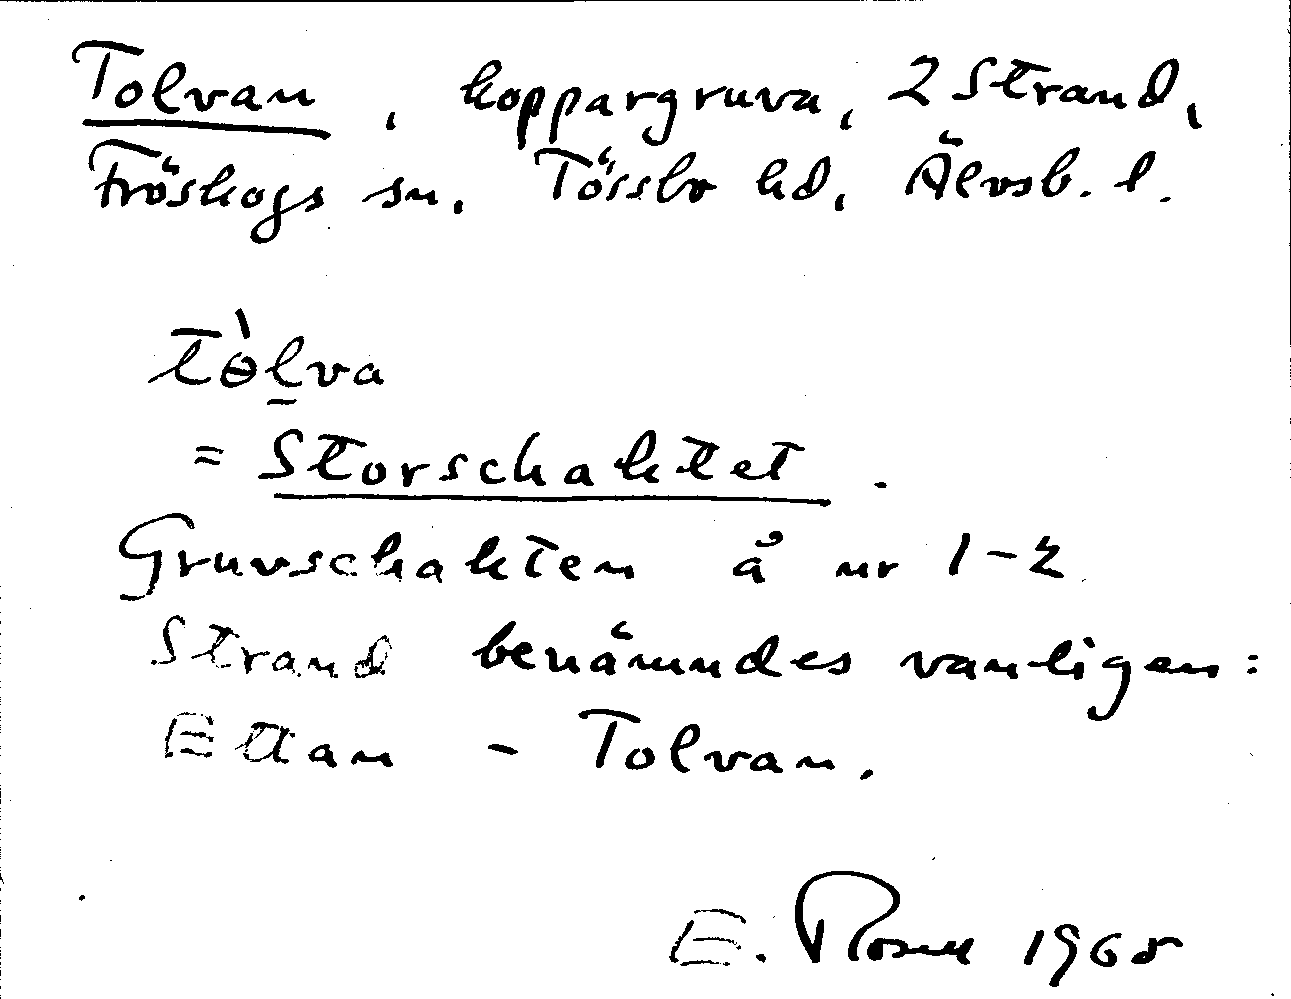 Tolvan, koppargruva, 2 Strand,
Fröskogs sn. Tössbo hd, Älvsb. l.
Tɵ̀l̠va
= Storschaktet.
Gruvschakten å nr 1-2
Strand benämndes vanligen:
Ettan - Tolvan.
E. 1968